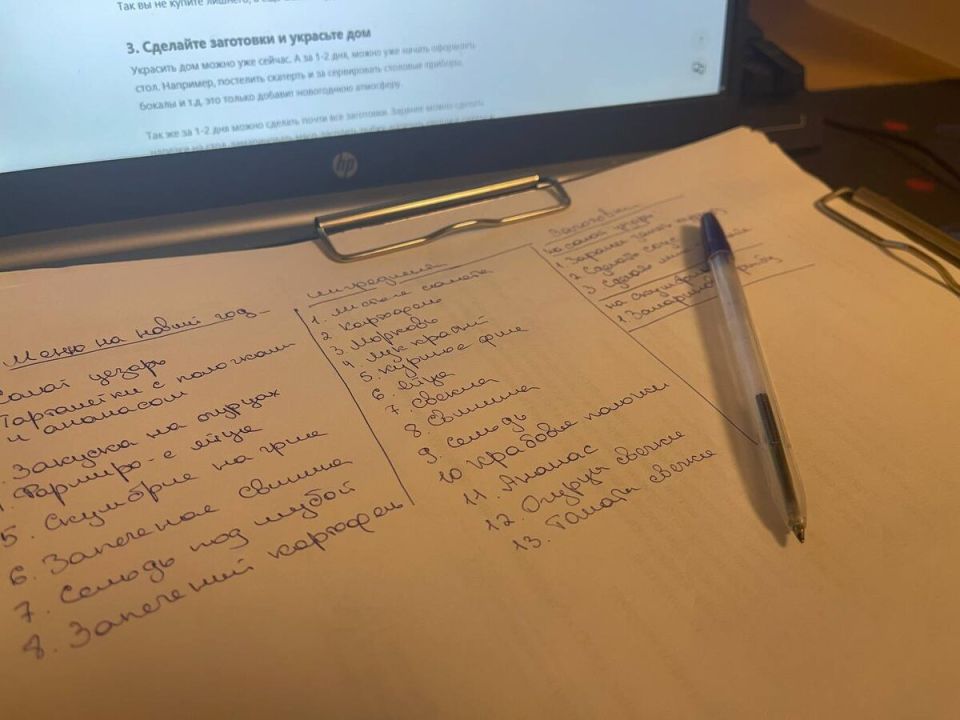 Так вы не купите лишнего, а ещё
3. Сделайте заготовки и украсьте дом
Украсить дом можно уже сейчас. А за 1-2 дня, можно уже начать оформлять
стол. Например, постелить скатерть и за сервировать столовые приборы,
бокалы и т.д. это только добавит новогоднюю атмосферу.
Так же за 1-2 дня можно сделать почти все заготовки. Заранее можно сделать
hp
Меню на новий год
Салат цезарь
Тарталетки с палочками
и ананасом
Закуска на огурцах
Фарширо-е яйца
5. Скумбрие на гриле
6. Запеченае свинина
7. Сельдь под шубой
8. Запечений картофель
ингредиенти
1. листья салата
2 Картофель
3 Морковь
4 Лук красний
5. куриное филе
6. яйца
7. свекла
8. Свинина
9. Сельдь
10 Крабовие палочки
11. Ананас
12. Огурци свежие
13. Томати свежие
Заготовки
на салат цезарь
1. Заранее
2 Сделать соус
3. Сделать
на скумбри
1. Замариновать рибу